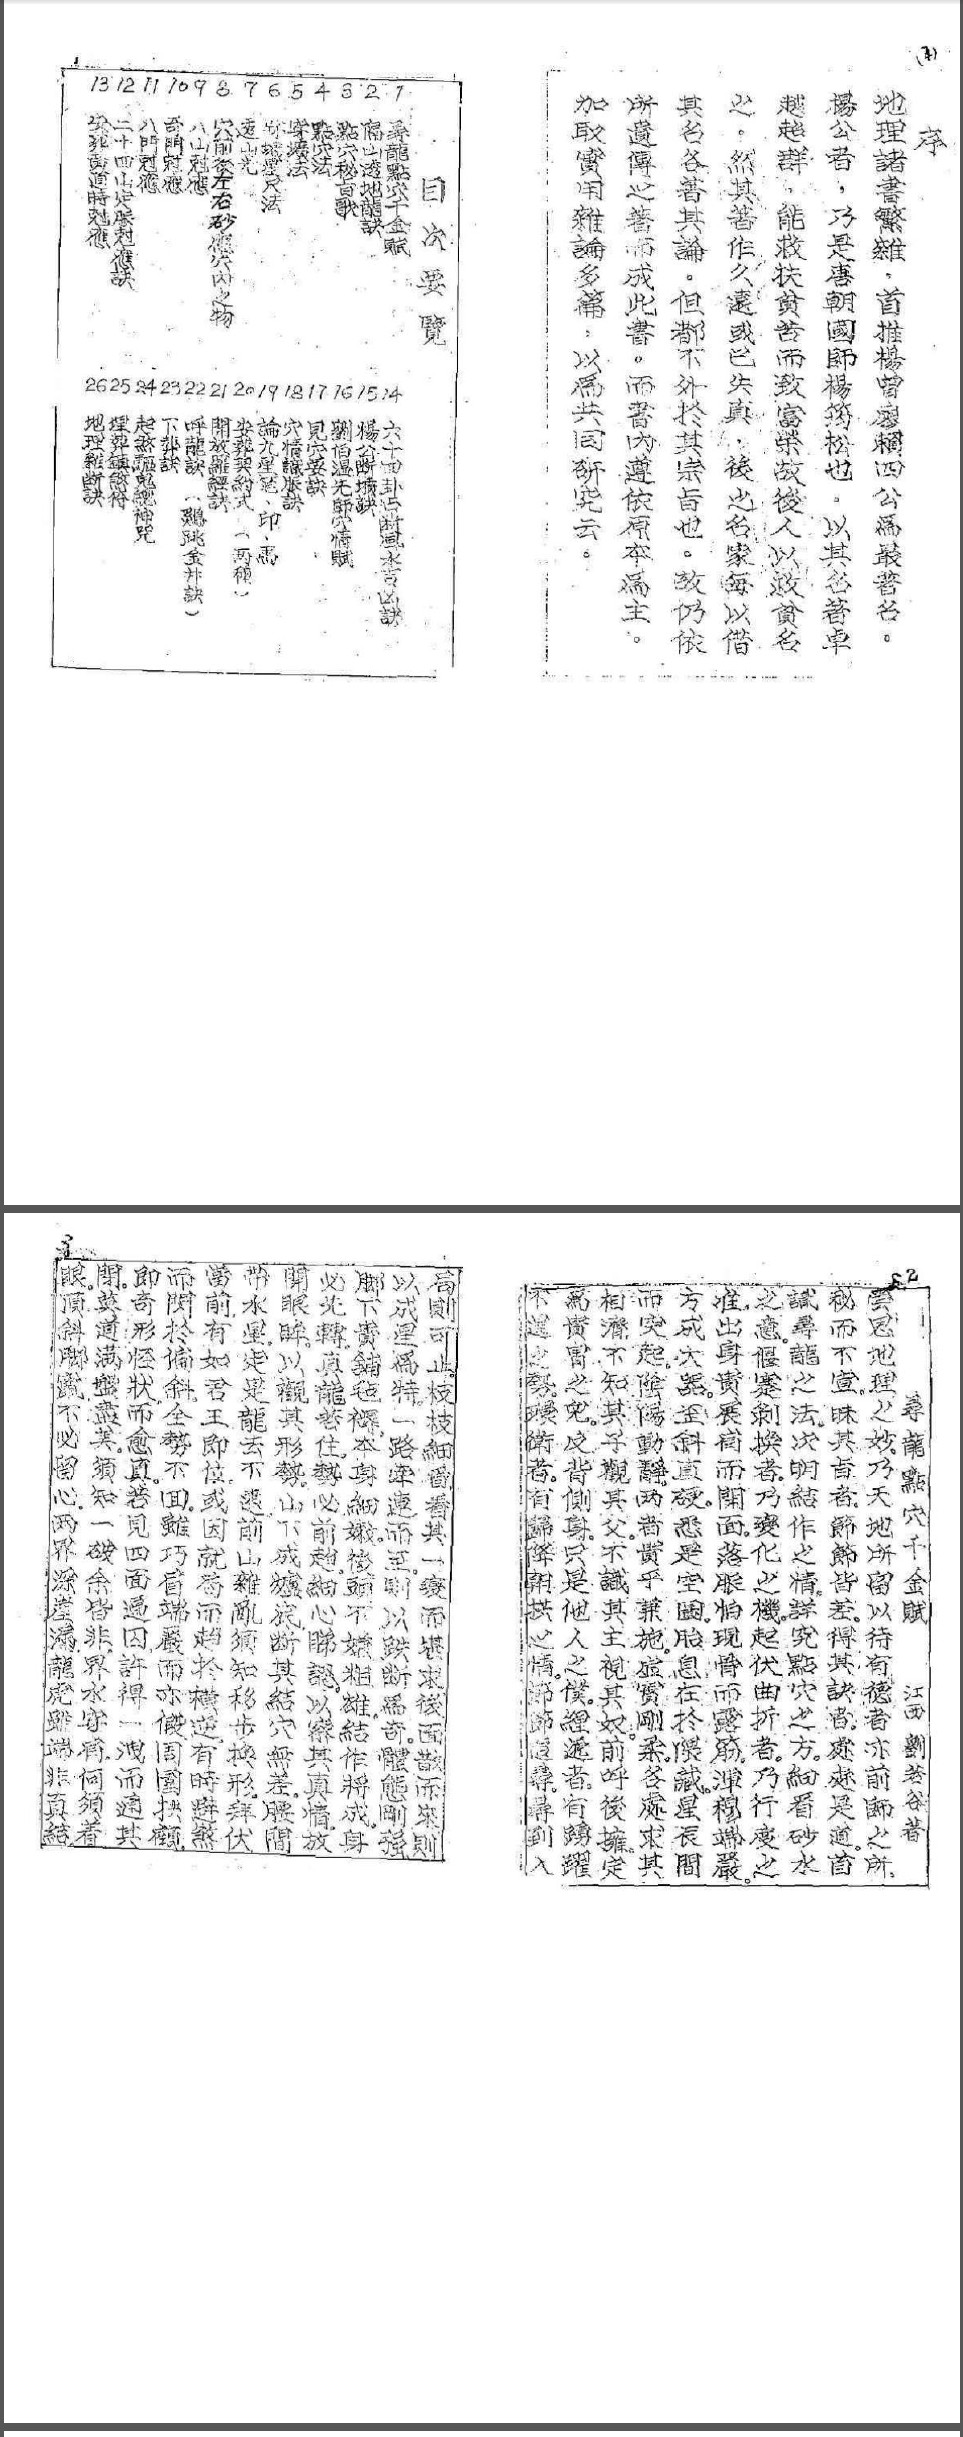 (1)
序
地理諸書繁雜，首推楊曾廖賴四公為最著名。
楊公者，乃是唐朝國師楊筠松也。以其名著卓
越超群，能救扶貧苦而致富榮故後人以救貧名
之。然其著作久遠或已失真，後之名家每以借
其名各著其論。但都不外於其宗旨也。故仍依
所遺傳之著而成此書。而書內遵依原本為主。
加取實用雜論多篇，以為共同研究云。
目次要覽
1 尋龍點穴千金賦
2 隔山透地龍訣
3 點穴秘百歌
4 點穴法
5 穿壙法
6 量尺法
7 遶山光
8 穴前後左右砂應穴內之物
9 八山剋應
10 奇門剋應
11 八門剋應
12 二十四山定脈剋應訣
13 安葬黃道時剋應
14 六十四卦占斷風水吉凶訣
15 楊公斷墳訣
16 劉伯溫先師穴情賦
17 見穴要訣
18 穴情識脈訣
19 論九星篦、印、禹
20 安葬契約式（兩種）
21 開放羅經訣
22 呼龍訣（鷄跳金井訣）
23 下葬訣
24 起煞驅鬼總神咒
25 埋葬鎮謝符
26 地理雜斷訣
2
尋龍點穴千金賦 江西劉若谷著
雲思地理之妙。乃天地所留以待有德者。亦前師之所
秘而不宣。昧其旨者。節節皆差。得其訣者。處處是道。首
識尋龍之法。次明結作之情。詳究點穴之方。細看砂水
之意。偃蹇剝換者。乃變化之機。起伏曲折者。乃行度之
准。出身貴展肩而開面。落脈怕現脊而露筋。渾穆端嚴。
方成大器。歪斜直硬。悉是空圖。胎息在於隈識。星辰間
而突起。陰陽動靜。兩者貴乎兼施。虛實剛柔。各處求其
相濟。不知其子。觀其父。不識其主。視其奴。前呼後擁。定
為貴冑之兒。反背側身。只是他人之僕。經遞者。有踴躍
不進之勢。環衛者。有歸降朝拱之情。節節追尋。尋到入
3
局則可止。枝枝細看。看其一變而堪求。後面散而來。則
以成星為特。一路牽連而至。則以跌斷為奇。體態剛強。
脚下貴鋪毡褥。本身細嫩。後頭不嫌粗雄。結作將成。身
必先轉。真龍若住。勢必前趨。細心睇認。以察其真情。放
開眼眸。以觀其形勢。山下成壚底。斷其結穴無差。腰間
帶水星。定是龍去不遠。前山雜亂。須知移步換形。拜伏
當前。有如君王即位。或因就局而趨於橫逆。有時避煞
而閃於偏斜。全勢不回。雖巧眉端嚴而亦假。周圍拱顧。
即奇形怪狀。而愈真。若見四面遍囚。許得一洩而通其
閉。莫道滿盤盡美。須知一破余皆非。界水穿肩。何須着
眼。頂斜脚竄。不必留心。兩界深崖漏。龍虎雖端非真結。